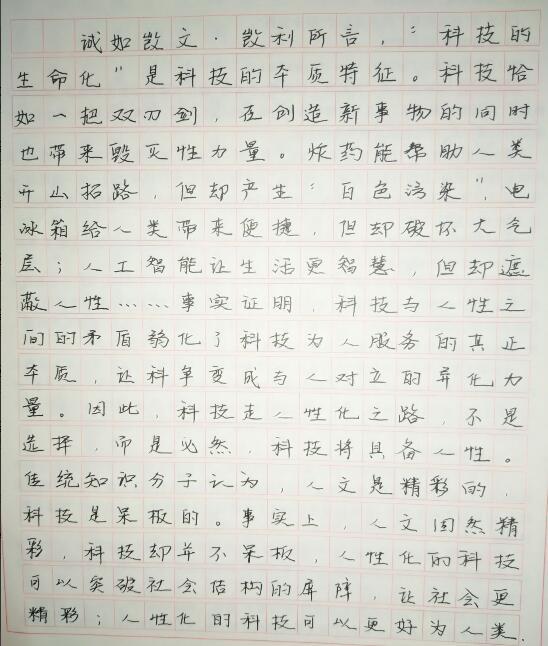 诚如凯文·凯利所言，“科技的
生命化”是科技的本质特征。科技恰
如一把双刃剑，在创造新事物的同时
也带来毁灭性力量。炸药能帮助人类
开山拓路，但却产生“白色污染”，电
冰箱给人类带来便捷，但却破坏大气
层；人工智能让生活更智慧，但却遮
蔽人性……事实证明，科技与人性之
间的矛盾弱化了科技为人服务的真正
本质，让科学变成与人对立的异化力
量。因此，科技走人性化之路，不是
选择，而是必然，科技将具备人性。
传统知识分子认为，人文是精彩的，
科技是呆板的。事实上，人文固然精
彩，科技却并不呆板，人性化的科技
可以突破社会结构的屏障，让社会更
精彩；人性化的科技可以更好为人类.